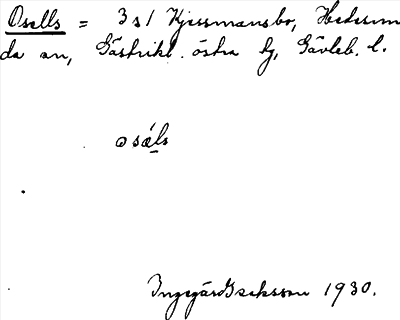 Osells = 3 s/ Kjessmansbo, Hedesun
da sn, Gästrikl. östra tg, Gävleb. l.
osǽls
Ingegärd Isaksson 1930.